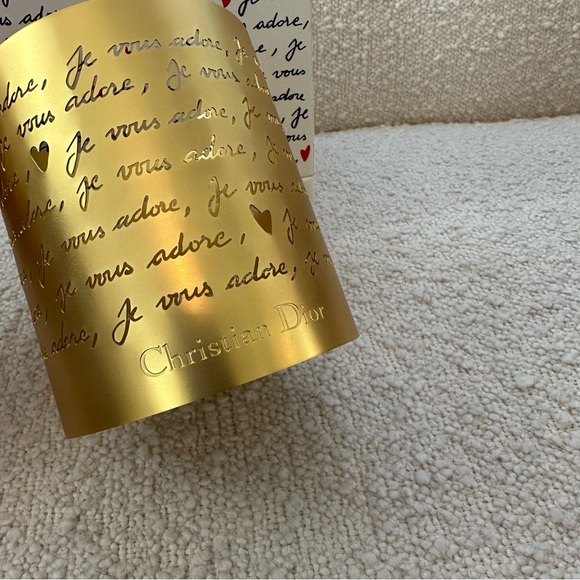 adore,
adore, Je
Je
vous
adore
Je
adore, Je vous adore, Je
vous adore, Je vous adore
Je vous adore, Je
Je vous adore, Je
adore, Je vous adore, Je
Je vous adore, Je vous
Je vous adore, Je
Je vous adore, je
adore, Je vous adore,
Christian Dior